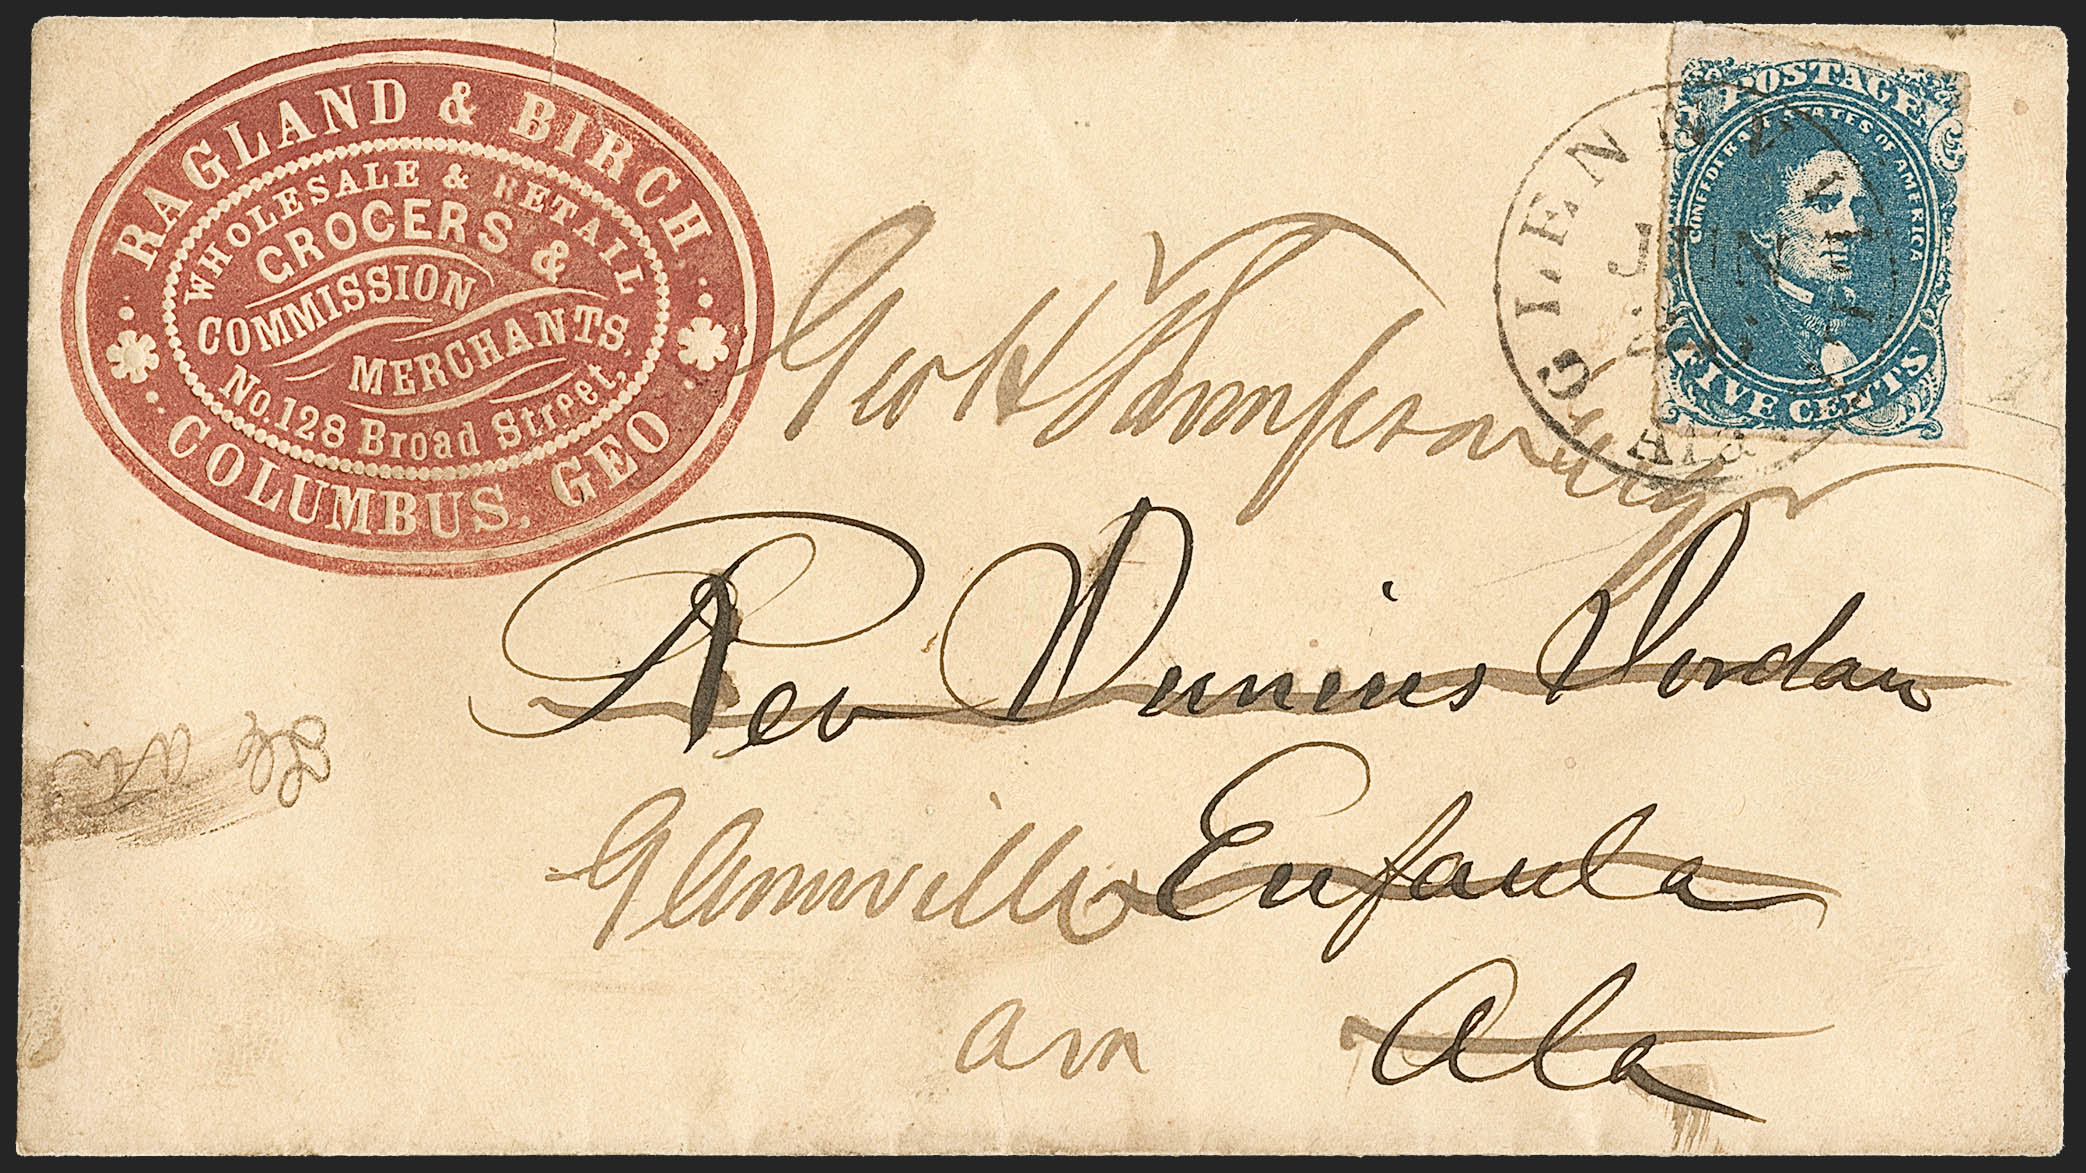 RAGLAND & BIRCH
WHOLESALE & RETAIL
GROCERS &
COMMISSION
MERCHANTS.
No. 128 Broad Street,
COLUMBUS, GEO
POSTAGE
CONFEDERATE STATES OF AMERICA
FIVE CENTS
GLENN
JUN
Ala
Geo H Thompson
Rev Junius Jordan
Glennville Eufaula
Ala